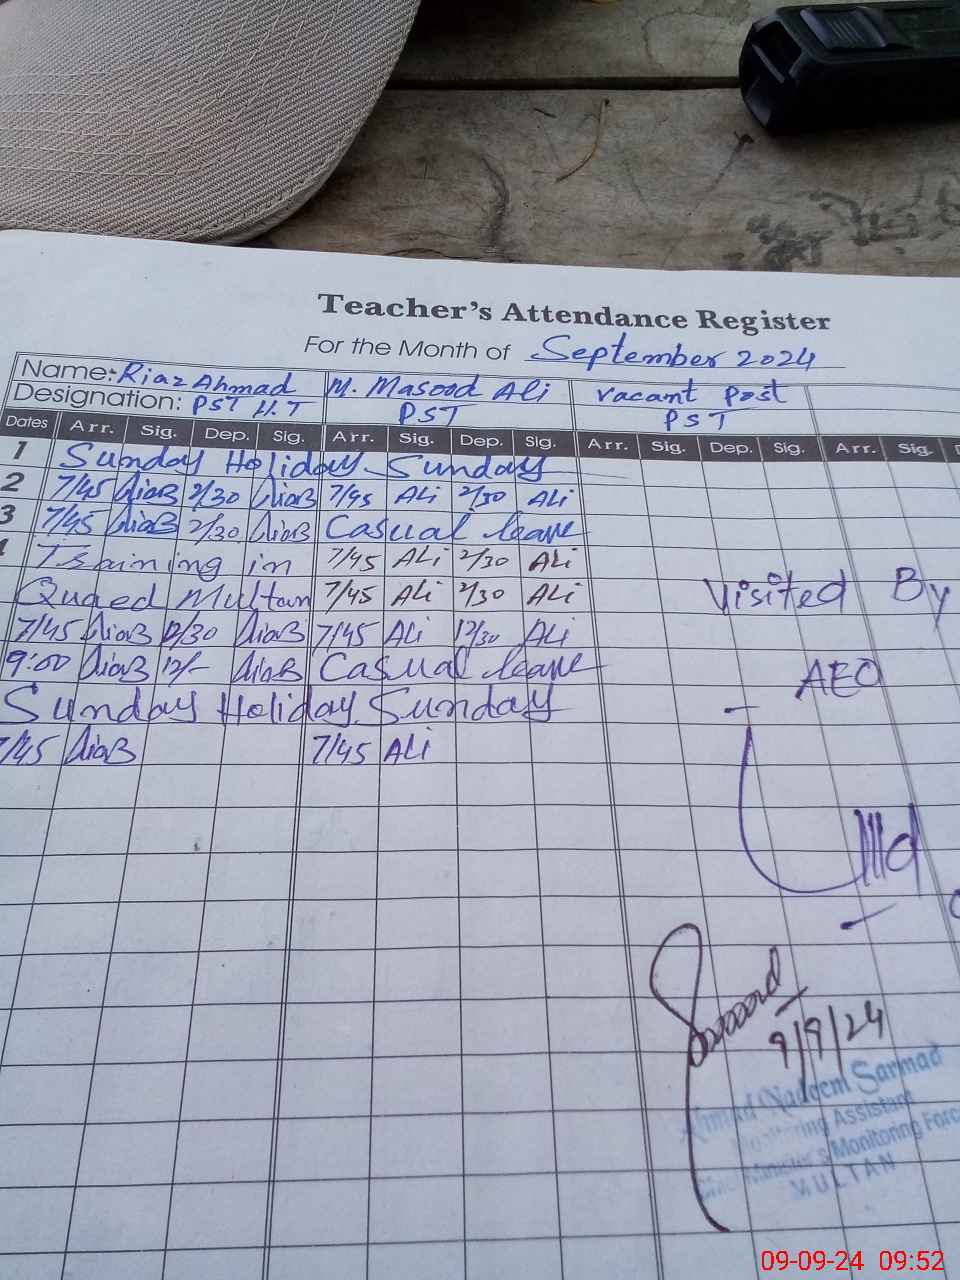 Teacher's Attendance Register
For the Month of September 2024
Name: Riaz Ahmad M. Masood Ali vacant post
Designation: PST H.T PST PST
Dates Arr. Sig. Dep. Sig. Arr. Sig. Dep. Sig. Arr. Sig. Dep. Sig. Arr. Sig. D
1 Sunday Holiday Sunday
2 7/45 2/30 7/45 ALi 2/30 ALi
3 7/45 2/30 Casual leave
Training in 7/45 ALi 2/30 ALi
Quaed Multan 7/45 ALi 2/30 ALi
7/45 12/30 7/45 ALi 12/30 ALi
9:00 12/- Casual leave
Sunday Holiday Sunday
7/45 7/45 ALi
Visited By
AEO
9/9/24
Ahmad Nadeem Sarmad
Monitoring Assistant
Chief Minister's Monitoring Forc
MULTAN
09-09-24 09:52